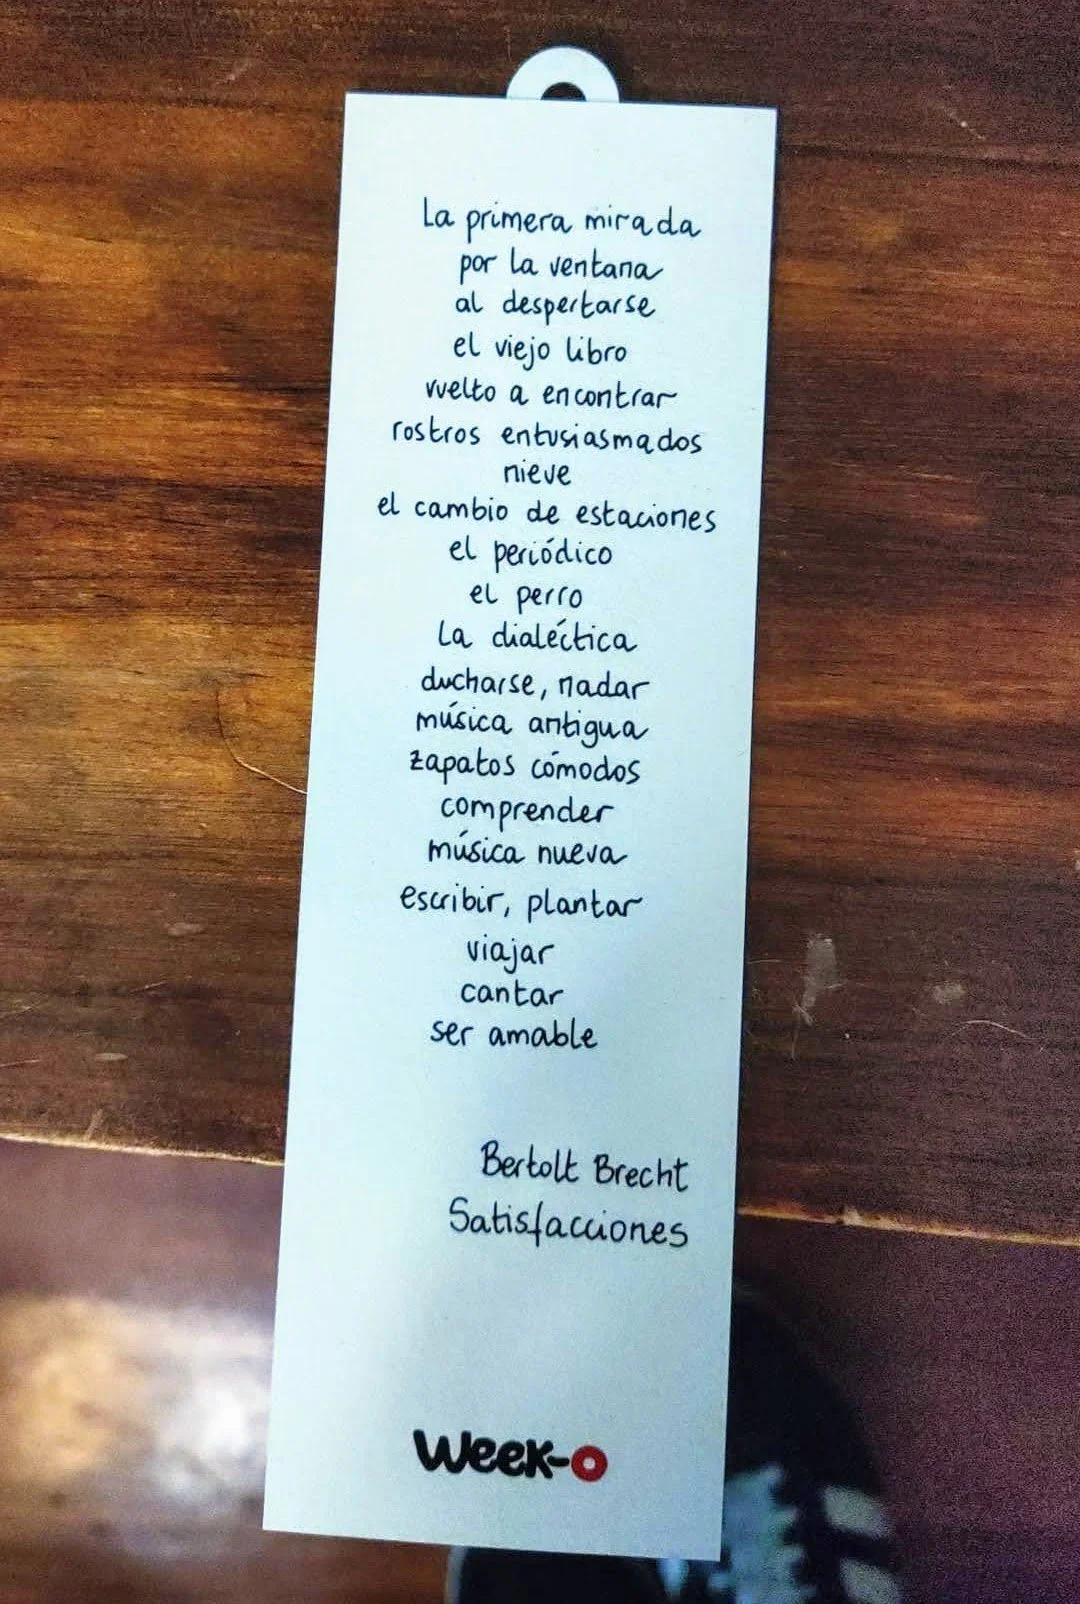 La primera mirada
por la ventana
al despertarse
el viejo libro
vuelto a encontrar
rostros entusiasmados
nieve
el cambio de estaciones
el periódico
el perro
La dialéctica
ducharse, nadar
música antigua
zapatos cómodos
comprender
música nueva
escribir, plantar
viajar
cantar
ser amable
Bertolt Brecht
Satisfacciones
Week-o